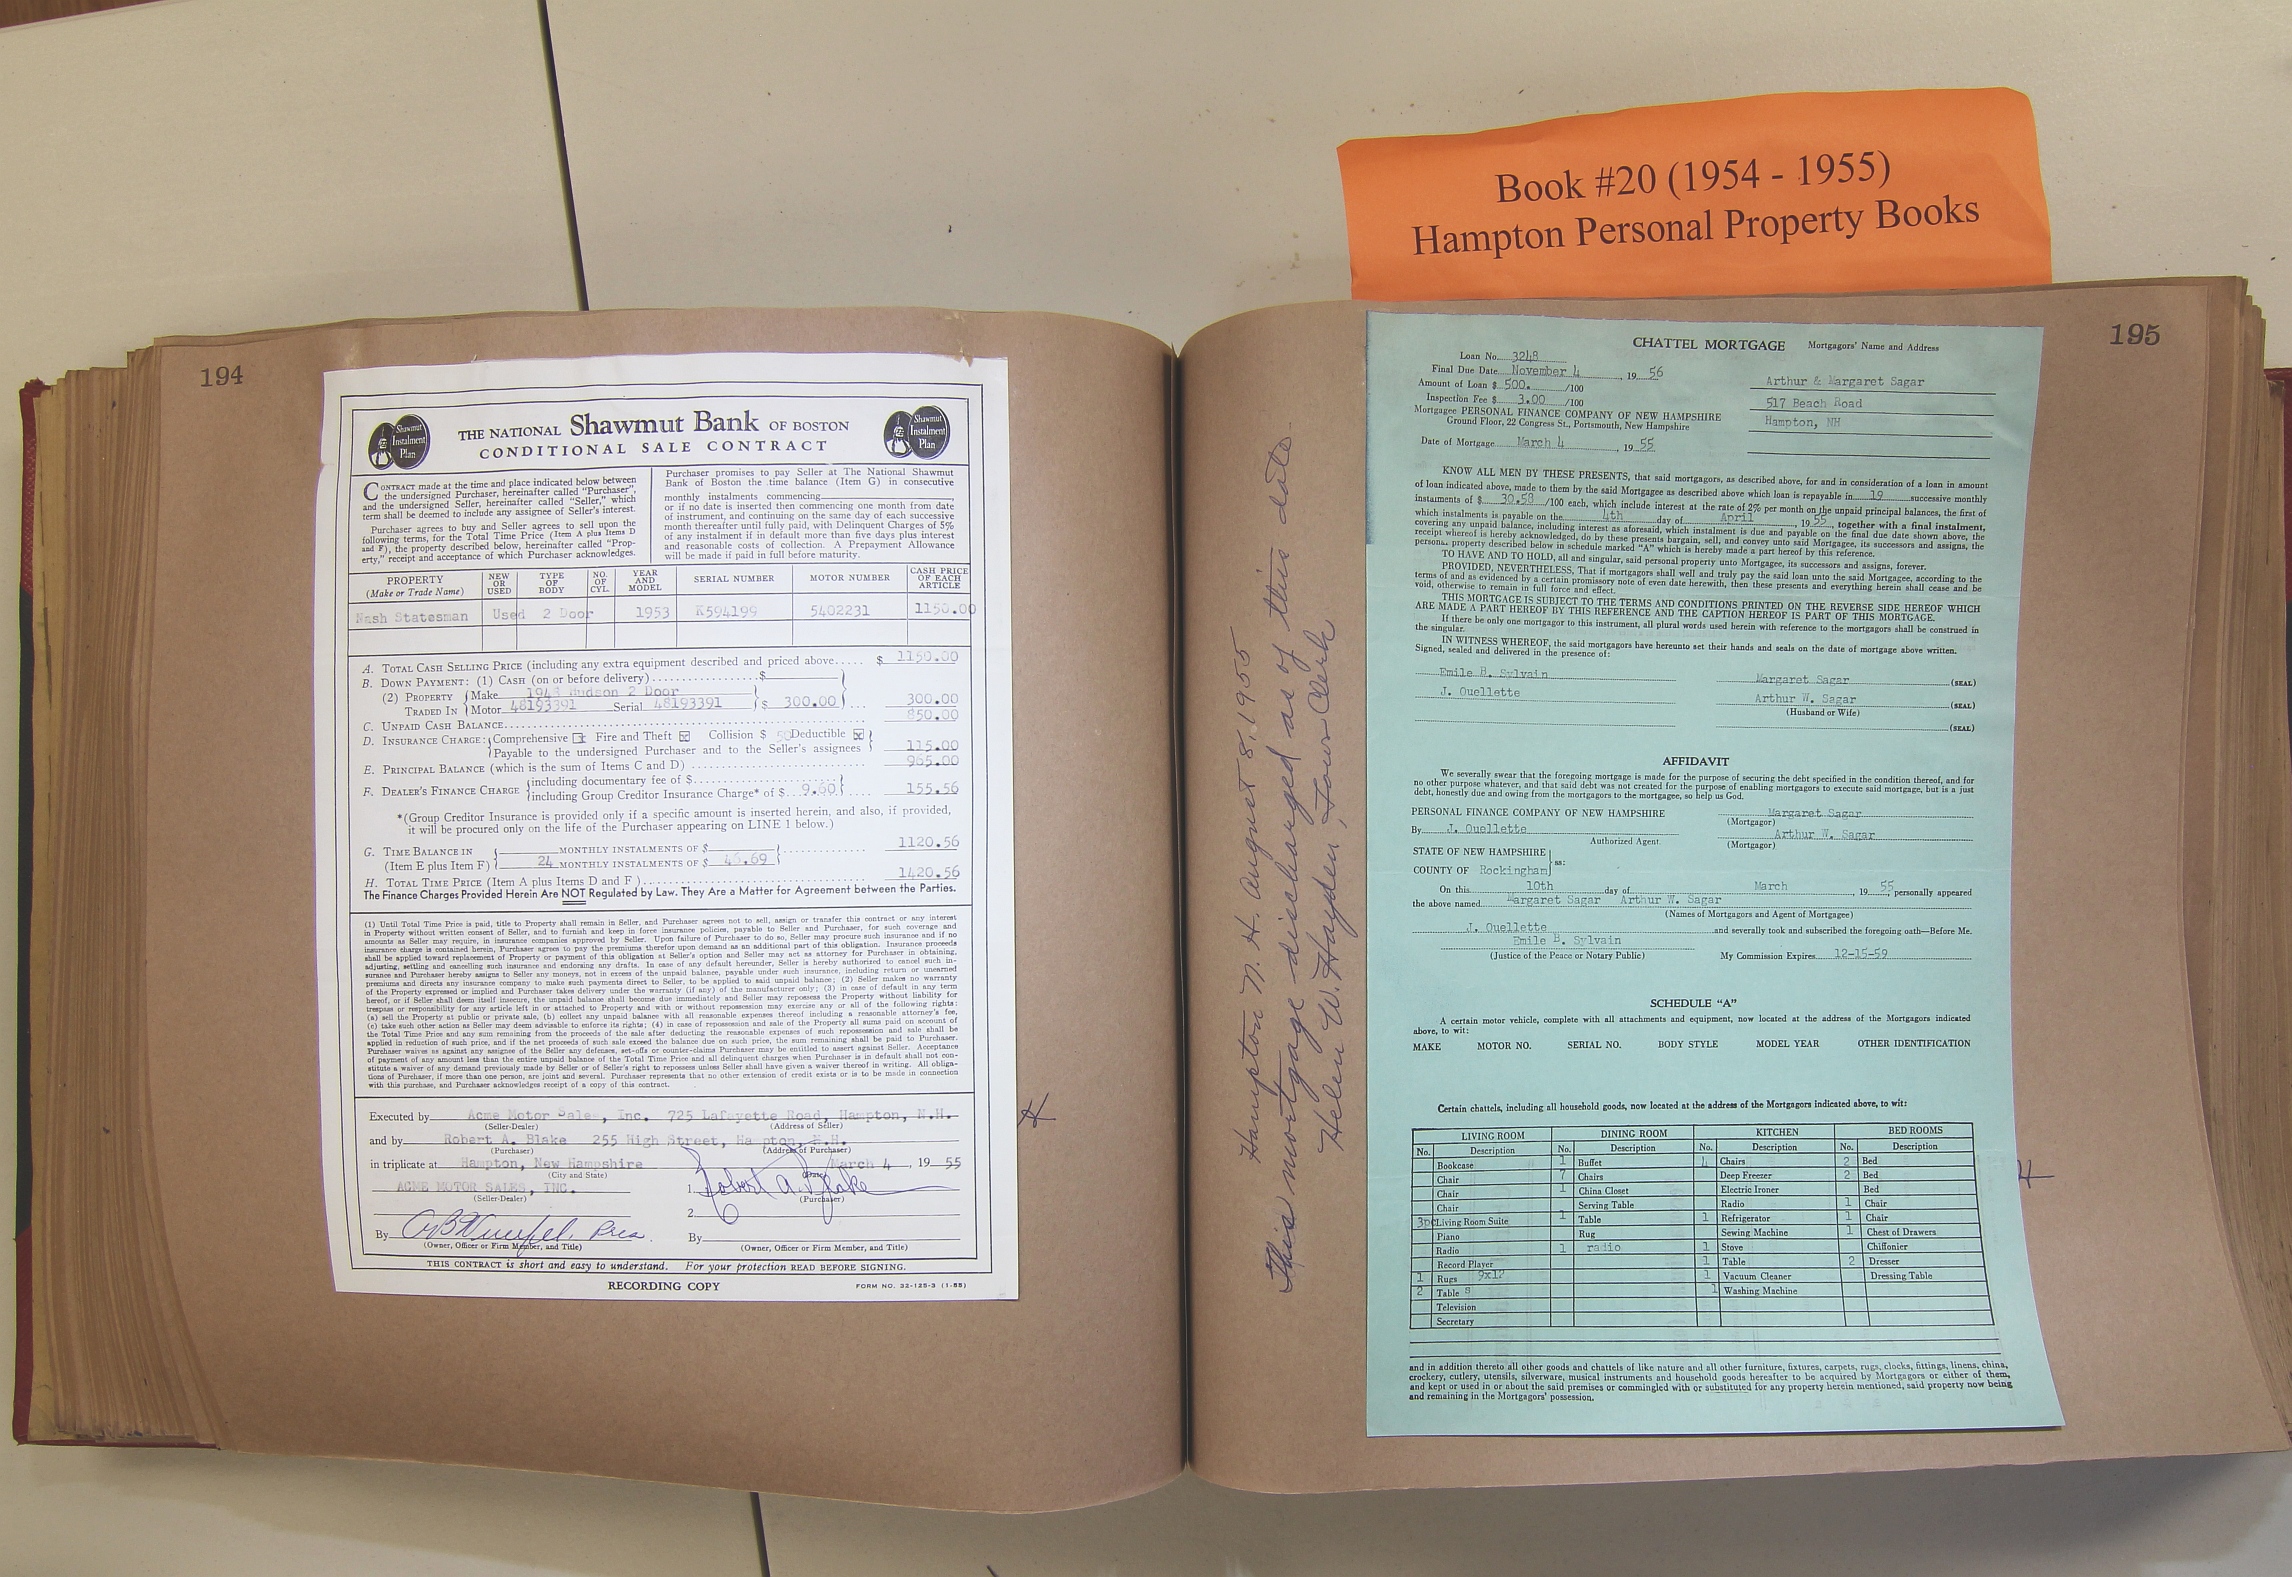 Book #20 (1954 - 1955)
Hampton Personal Property Books
194
Shawmut
Instalment
Plan
THE NATIONAL Shawmut Bank OF BOSTON
CONDITIONAL SALE CONTRACT
Shawmut
Instalment
Plan
CONTRACT made at the time and place indicated below between
the undersigned Purchaser, hereinafter called "Purchaser",
and the undersigned Seller, hereinafter called "Seller," which
term shall be deemed to include any assignee of Seller's interest.
Purchaser agrees to buy and Seller agrees to sell upon the
following terms, for the Total Time Price (Item A plus Items D
and F), the property described below, hereinafter called "Prop-
erty," receipt and acceptance of which Purchaser acknowledges.
Purchaser promises to pay Seller at The National Shawmut
Bank of Boston the time balance (Item G) in consecutive
monthly instalments commencing
or if no date is inserted then commencing one month from date
of instrument, and continuing on the same day of each successive
month thereafter until fully paid, with Delinquent Charges of 5%
of any instalment if in default more than five days plus interest
and reasonable costs of collection. A Prepayment Allowance
will be made if paid in full before maturity.
PROPERTY (Make or Trade Name) NEW OR USED TYPE OF BODY NO. OF CYL. YEAR AND MODEL SERIAL NUMBER MOTOR NUMBER CASH PRICE OF EACH ARTICLE
Nash Statesman Used 2 Door 1953 K594199 5402231 1150.00
A. TOTAL CASH SELLING PRICE (including any extra equipment described and priced above..... $ 1150.00
B. DOWN PAYMENT: (1) CASH (on or before delivery)..................$
(2) PROPERTY TRADED IN Make 1948 Hudson 2 Door
Motor 48193391 Serial 48193391 $ 300.00 .... 300.00
C. UNPAID CASH BALANCE 850.00
D. INSURANCE CHARGE: Comprehensive Fire and Theft Collision $ 50 Deductible
Payable to the undersigned Purchaser and to the Seller's assignees 115.00
E. PRINCIPAL BALANCE (which is the sum of Items C and D) 965.00
F. DEALER'S FINANCE CHARGE including documentary fee of $
including Group Creditor Insurance Charge* of $ 9.60 .... 155.56
*(Group Creditor Insurance is provided only if a specific amount is inserted herein, and also, if provided,
it will be procured only on the life of the Purchaser appearing on LINE 1 below.)
G. TIME BALANCE IN MONTHLY INSTALMENTS OF $ 1120.56
(Item E plus Item F) 24 MONTHLY INSTALMENTS OF $ 46.69
H. TOTAL TIME PRICE (Item A plus Items D and F) 1420.56
The Finance Charges Provided Herein Are NOT Regulated by Law. They Are a Matter for Agreement between the Parties.
(1) Until Total Time Price is paid, title to Property shall remain in Seller, and Purchaser agrees not to sell, assign or transfer this contract or any interest
in Property without written consent of Seller, and to furnish and keep in force insurance policies, payable to Seller and Purchaser, for such coverage and
amounts as Seller may require, in insurance companies approved by Seller. Upon failure of Purchaser to do so, Seller may procure such insurance and if no
insurance charge is contained herein, Purchaser agrees to pay the premiums therefor upon demand as an additional part of this obligation. Insurance proceeds
shall be applied toward replacement of Property or payment of this obligation at Seller's option and Seller may act as attorney for Purchaser in obtaining,
adjusting, settling and cancelling such insurance and endorsing any drafts. In case of any default hereunder, Seller is hereby authorized to cancel such in-
surance and Purchaser hereby assigns to Seller any moneys, not in excess of the unpaid balance, payable under such insurance, including return or unearned
premiums and directs any insurance company to make such payments direct to Seller, to be applied to said unpaid balance; (2) Seller makes no warranty
of the Property expressed or implied and Purchaser takes delivery under the warranty (if any) of the manufacturer only; (3) in case of default in any term
hereof, or if Seller shall deem itself insecure, the unpaid balance shall become due immediately and Seller may repossess the Property without liability for
trespass or responsibility for any article left in or attached to Property and with or without repossession may exercise any or all of the following rights:
(a) sell the Property at public or private sale, (b) collect any unpaid balance with all reasonable expenses thereof including a reasonable attorney's fee,
(c) take such other action as Seller may deem advisable to enforce its rights; (4) in case of repossession and sale of the Property all sums paid on account of
the Total Time Price and any sum remaining from the proceeds of the sale after deducting the reasonable expenses of such repossession and sale shall be
applied in reduction of such price, and if the net proceeds of such sale exceed the balance due on such price, the sum remaining shall be paid to Purchaser.
Purchaser waives as against any assignee of the Seller any defenses, set-offs or counter-claims Purchaser may be entitled to assert against Seller. Acceptance
of payment of any amount less than the entire unpaid balance of the Total Time Price and all delinquent charges when Purchaser is in default shall not con-
stitute a waiver of any demand previously made by Seller or of Seller's right to repossess unless Seller shall have given a waiver thereof in writing. All obliga-
tions of Purchaser, if more than one person, are joint and several. Purchaser represents that no other extension of credit exists or is to be made in connection
with this purchase, and Purchaser acknowledges receipt of a copy of this contract.
Executed by Acme Motor Sales, Inc. 725 Lafayette Road, Hampton, N.H.
(Seller-Dealer) (Address of Seller)
and by Robert A. Blake 255 High Street, Hampton, N.H.
(Purchaser) (Address of Purchaser)
in triplicate at Hampton, New Hampshire March 4, 19 55
(City and State) (Date)
ACME MOTOR SALES, INC. 1. Robert A. Blake
(Seller-Dealer) (Purchaser)
2.
By Pres. By
(Owner, Officer or Firm Member, and Title) (Owner, Officer or Firm Member, and Title)
THIS CONTRACT is short and easy to understand. For your protection READ BEFORE SIGNING.
RECORDING COPY FORM NO. 32-125-3 (1-55)
Hampton N. H. August 8, 1955
This mortgage discharged as of this date.
Helen W. Hayden, Town Clerk
195
CHATTEL MORTGAGE Mortgagors' Name and Address
Loan No. 3248
Final Due Date November 4, 19 56
Amount of Loan $ 500. /100
Inspection Fee $ 3.00 /100
Mortgagee PERSONAL FINANCE COMPANY OF NEW HAMPSHIRE
Ground Floor, 22 Congress St., Portsmouth, New Hampshire
Date of Mortgage March 4, 19 55
Arthur & Margaret Sagar
517 Beach Road
Hampton, NH
KNOW ALL MEN BY THESE PRESENTS, that said mortgagors, as described above, for and in consideration of a loan in amount
of loan indicated above, made to them by the said Mortgagee as described above which loan is repayable in 19 successive monthly
instalments of $ 30.58 /100 each, which include interest at the rate of 2% per month on the unpaid principal balances, the first of
which instalments is payable on the 4th day of April, 19 55, together with a final instalment,
covering any unpaid balance, including interest as aforesaid, which instalment is due and payable on the final due date shown above, the
receipt whereof is hereby acknowledged, do by these presents bargain, sell, and convey unto said Mortgagee, its successors and assigns, the
personal property described below in schedule marked "A" which is hereby made a part hereof by this reference.
TO HAVE AND TO HOLD, all and singular, said personal property unto Mortgagee, its successors and assigns, forever.
PROVIDED, NEVERTHELESS, That if mortgagors shall well and truly pay the said loan unto the said Mortgagee, according to the
terms of and as evidenced by a certain promissory note of even date herewith, then these presents and everything herein shall cease and be
void, otherwise to remain in full force and effect.
THIS MORTGAGE IS SUBJECT TO THE TERMS AND CONDITIONS PRINTED ON THE REVERSE SIDE HEREOF WHICH
ARE MADE A PART HEREOF BY THIS REFERENCE AND THE CAPTION HEREOF IS PART OF THIS MORTGAGE.
If there be only one mortgagor to this instrument, all plural words used herein with reference to the mortgagors shall be construed in
the singular.
IN WITNESS WHEREOF, the said mortgagors have hereunto set their hands and seals on the date of mortgage above written.
Signed, sealed and delivered in the presence of:
Emile B. Sylvain Margaret Sagar (SEAL)
J. Ouellette Arthur W. Sagar (SEAL)
(Husband or Wife)
(SEAL)
AFFIDAVIT
We severally swear that the foregoing mortgage is made for the purpose of securing the debt specified in the condition thereof, and for
no other purpose whatever, and that said debt was not created for the purpose of enabling mortgagors to execute said mortgage, but is a just
debt, honestly due and owing from the mortgagors to the mortgagee, so help us God.
PERSONAL FINANCE COMPANY OF NEW HAMPSHIRE Margaret Sagar
(Mortgagor)
By J. Ouellette Arthur W. Sagar
Authorized Agent. (Mortgagor)
STATE OF NEW HAMPSHIRE
ss:
COUNTY OF Rockingham
On this 10th day of March, 19 55 personally appeared
the above named Margaret Sagar Arthur W. Sagar
(Names of Mortgagors and Agent of Mortgagee)
J. Ouellette and severally took and subscribed the foregoing oath—Before Me.
Emile B. Sylvain
(Justice of the Peace or Notary Public) My Commission Expires 12-15-59
SCHEDULE "A"
A certain motor vehicle, complete with all attachments and equipment, now located at the address of the Mortgagors indicated
above, to wit:
MAKE MOTOR NO. SERIAL NO. BODY STYLE MODEL YEAR OTHER IDENTIFICATION
Certain chattels, including all household goods, now located at the address of the Mortgagors indicated above, to wit:
LIVING ROOM DINING ROOM KITCHEN BED ROOMS
No. Description No. Description No. Description No. Description
Bookcase 1 Buffet 4 Chairs 2 Bed
Chair 7 Chairs Deep Freezer 2 Bed
Chair 1 China Closet Electric Ironer Bed
Chair Serving Table Radio 1 Chair
3pc Living Room Suite 1 Table 1 Refrigerator 1 Chair
Piano Rug Sewing Machine 1 Chest of Drawers
Radio 1 radio 1 Stove Chiffonier
Record Player 1 Table 2 Dresser
1 Rugs 9x12 1 Vacuum Cleaner Dressing Table
2 Table s 1 Washing Machine
Television
Secretary
and in addition thereto all other goods and chattels of like nature and all other furniture, fixtures, carpets, rugs, clocks, fittings, linens, china,
crockery, cutlery, utensils, silverware, musical instruments and household goods hereafter to be acquired by Mortgagors or either of them,
and kept or used in or about the said premises or commingled with or substituted for any property herein mentioned, said property now being
and remaining in the Mortgagors' possession.